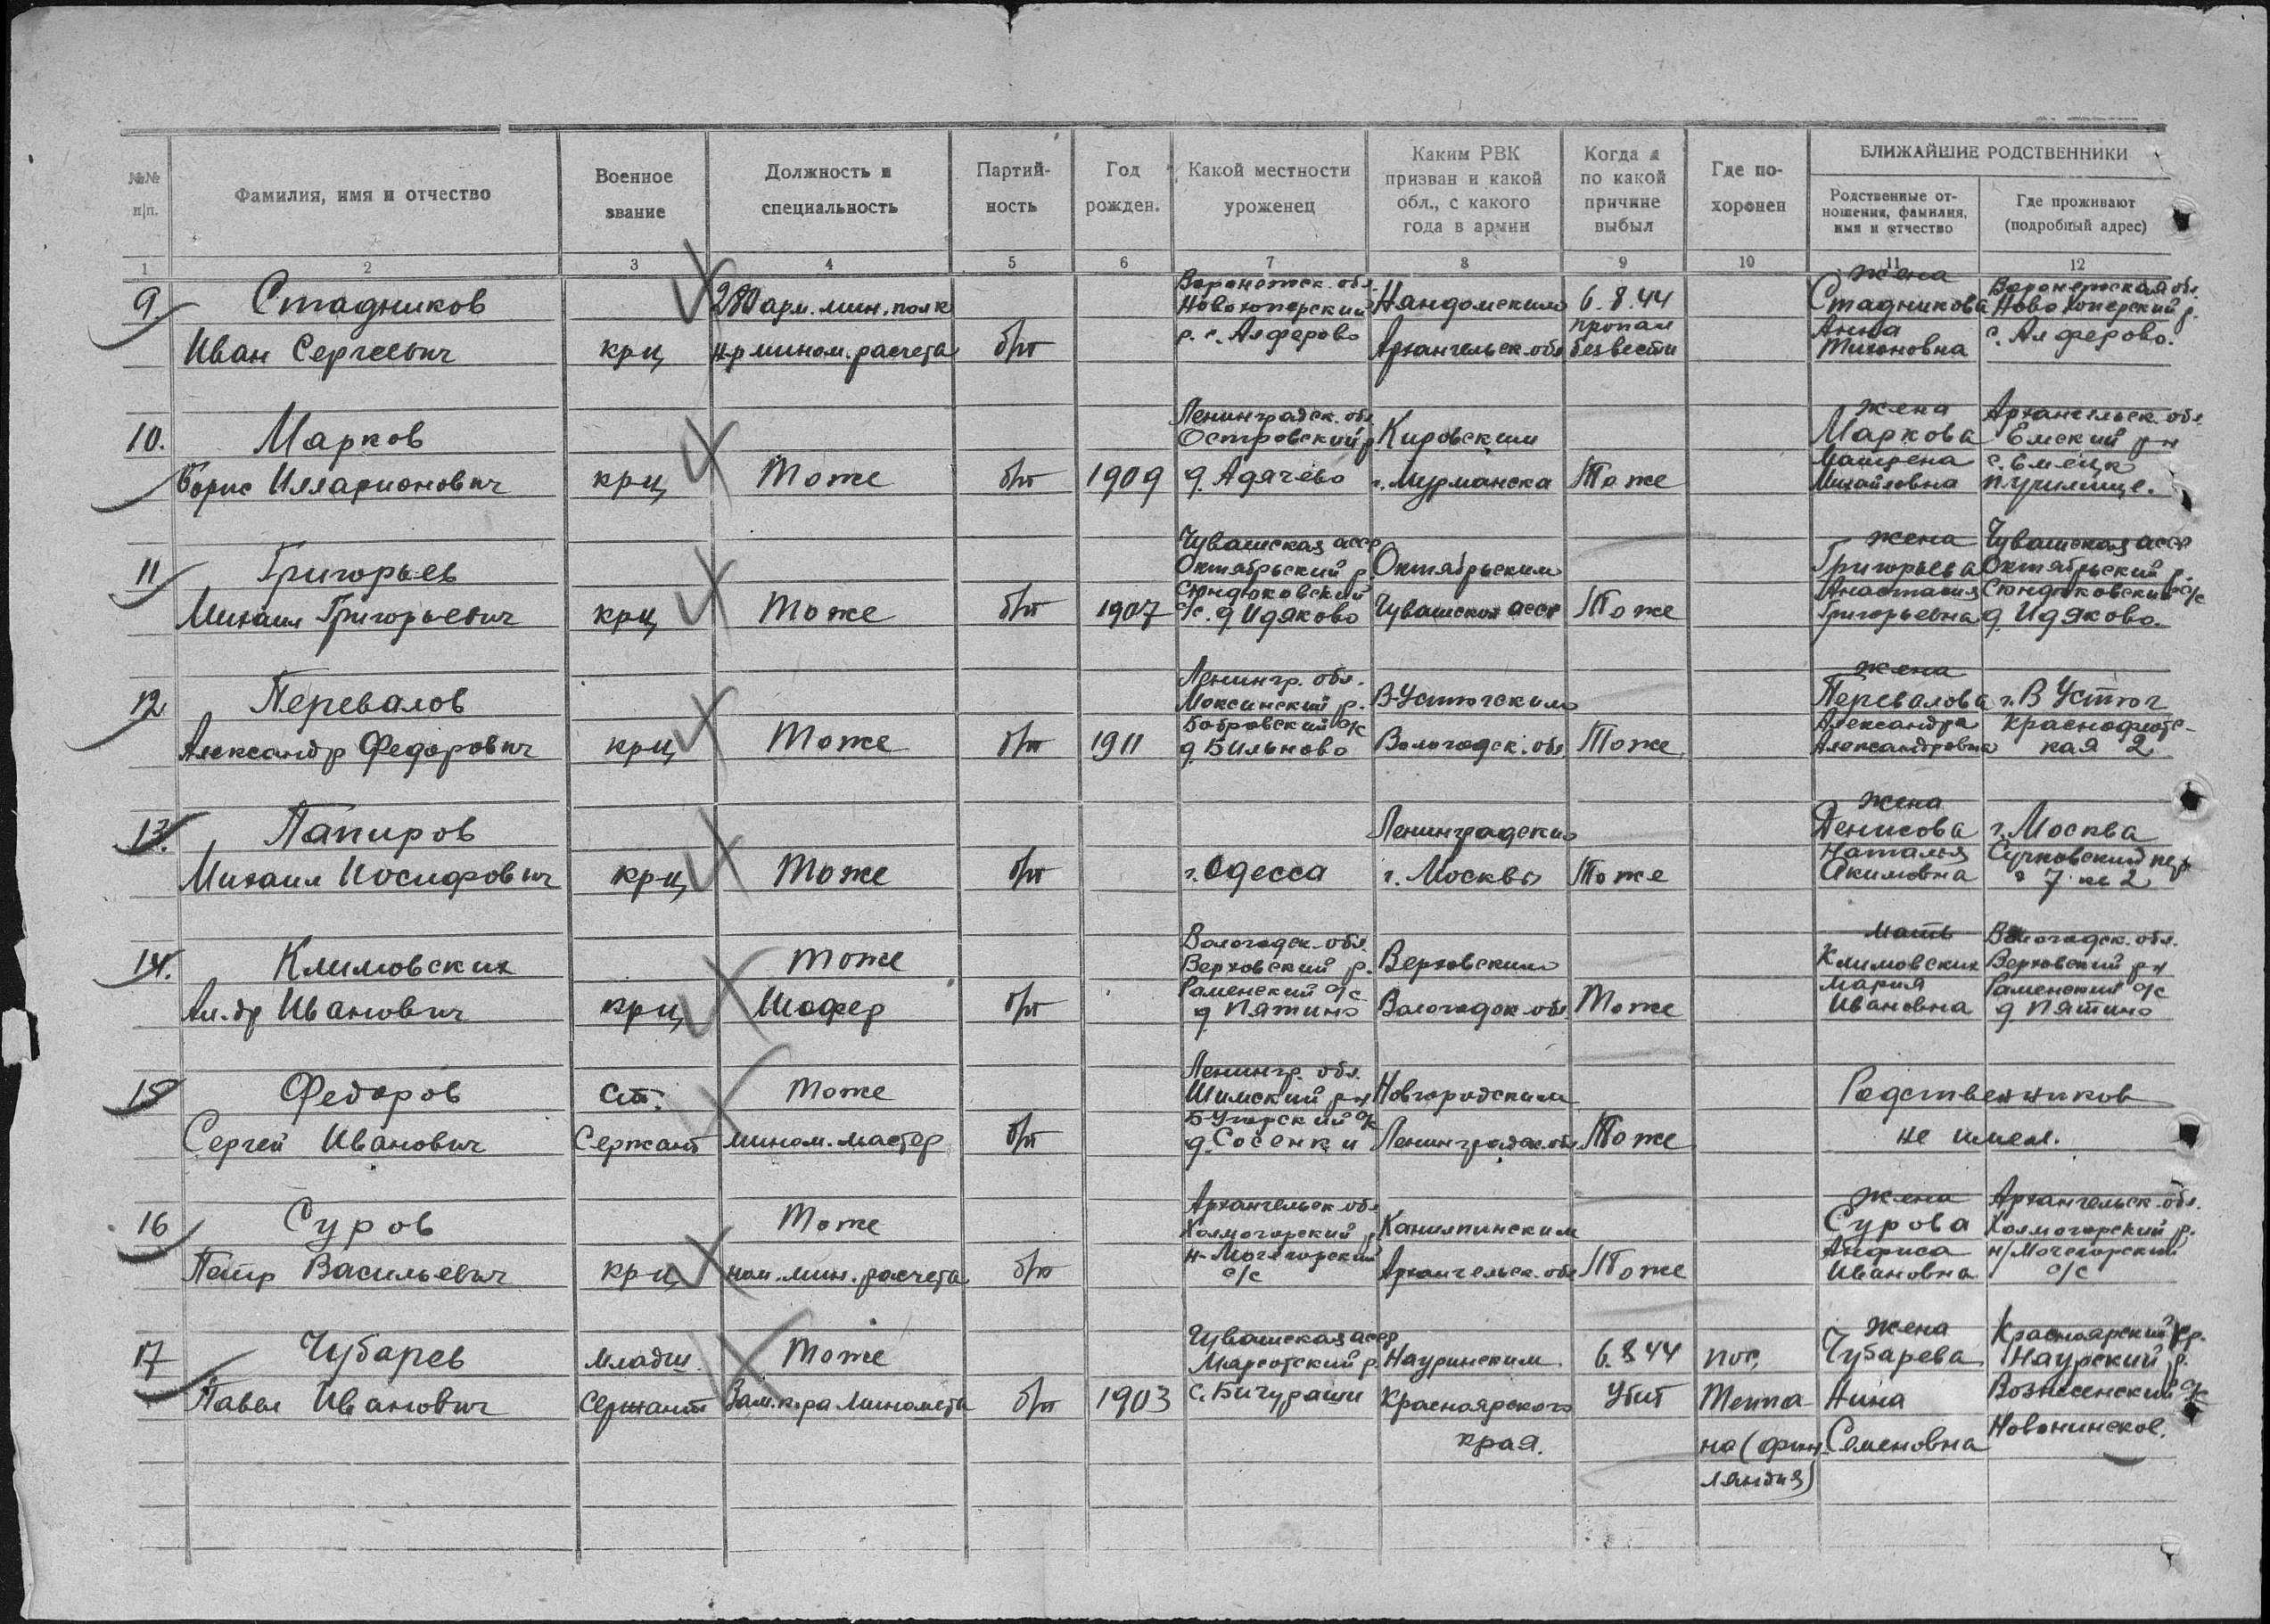 №№ п/п.
Фамилия, имя и отчество
Военное звание
Должность и специальность
Партий-ность
Год рожден.
Какой местности уроженец
Каким РВК призван и какой обл., с какого года в армии
Когда и по какой причине выбыл
Где по-хоронен
БЛИЖАЙШИЕ РОДСТВЕННИКИ
Родственные от-ношения, фамилия, имя и отчество
Где проживают (подробный адрес)
1 2 3 4 5 6 7 8 9 10 11 12
9
Стадников
Иван Сергеевич
крц
280 арм. мин. полк
н-р мином. расчета
б/п
Воронежск. обл.
Новохоперский
р. с. Алферово
Няндомским
Архангельск. обл
6.8.44
пропал
без вести
жена
Стадникова
Анна
Тихоновна
Воронежская обл.
Новохоперский р.
с. Алферово.
10.
Марков
Борис Илларионович
крц
Тоже
б/п
1909
Ленинградск. обл
Островский р
д. Адячево
Кировским
г. Мурманска
Тоже
жена
Маркова
Матрена
Михайловна
Архангельск. обл.
Емский р-н
с. Емецк
п. училище.
11
Григорьев
Михаил Григорьевич
крц
Тоже
б/п
1907
Чувашская асср
Октябрьский р.
Сюндюковский
с/с. д Идяково
Октябрьским
Чувашской асср
Тоже
жена
Григорьева
Анастасия
Григорьевна
Чувашская асср
Октябрьский р.
Сюндюковский с/с
д. Идяково.
12
Перевалов
Александр Федорович
крц
Тоже
б/п
1911
Ленингр. обл.
Моксинский р.
Бобровский с/с
д. Бильново
В-Устюгским
Вологодск. обл.
Тоже
жена
Перевалова
Александра
Александровна
г. В Устюг
Краснофлотс-
кая 2
13.
Папиров
Михаил Иосифович
крц
Тоже
б/п
г. Одесса
Ленинградским
г. Москвы
Тоже
жена
Денисова
Наталья
Акимовна
г. Москва
Сучковский пер
7 кв 2
14.
Климовских
Ал-др Иванович
крц
Тоже
Шофер
б/п
Вологодск. обл.
Верховский р.
Раменский с/с
д. Пятино
Верховским
Вологодск. обл.
Тоже
мать
Климовских
Мария
Ивановна
Вологодск. обл.
Верховский р-н
Раменский с/с
д. Пятино
15
Федоров
Сергей Иванович
Ст.
Сержант
Тоже
мином. мастер
б/п
Ленингр. обл.
Шимский р-н
Б-Угорский с/с
д. Сосенки
Новгородским
Ленинградск. обл
Тоже
Родственников
не имел.
16
Суров
Петр Васильевич
крц
Тоже
ном. мин. расчета
б/п
Архангельск обл
Холмогорский р
н-Мотегорский
с/с
Архангельск. обл
Тоже
жена
Сурова
Анфиса
Ивановна
Архангельск. обл.
Холмогорский р.
с/с
17
Чубарев
Павел Иванович
Младш.
Сержант
Тоже
Зам. к-ра миномета
б/п
1903
Чувашская асср
с. Бичураши
Красноярского
края.
6.8.44
Убит
пос.
Теппа
на (фин-
ляндия)
жена
Чубарева
Нина
Семеновна
Красноярский кр.
Вознесенский с/с
Новонинское.